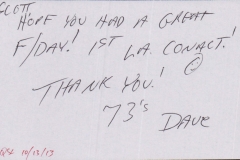 SCOTT
HOPE YOU HAD A GREAT
F/DAY! 1ST LA. CONACT!
THANK YOU!
73's
DAVE
QSL 10/13/13